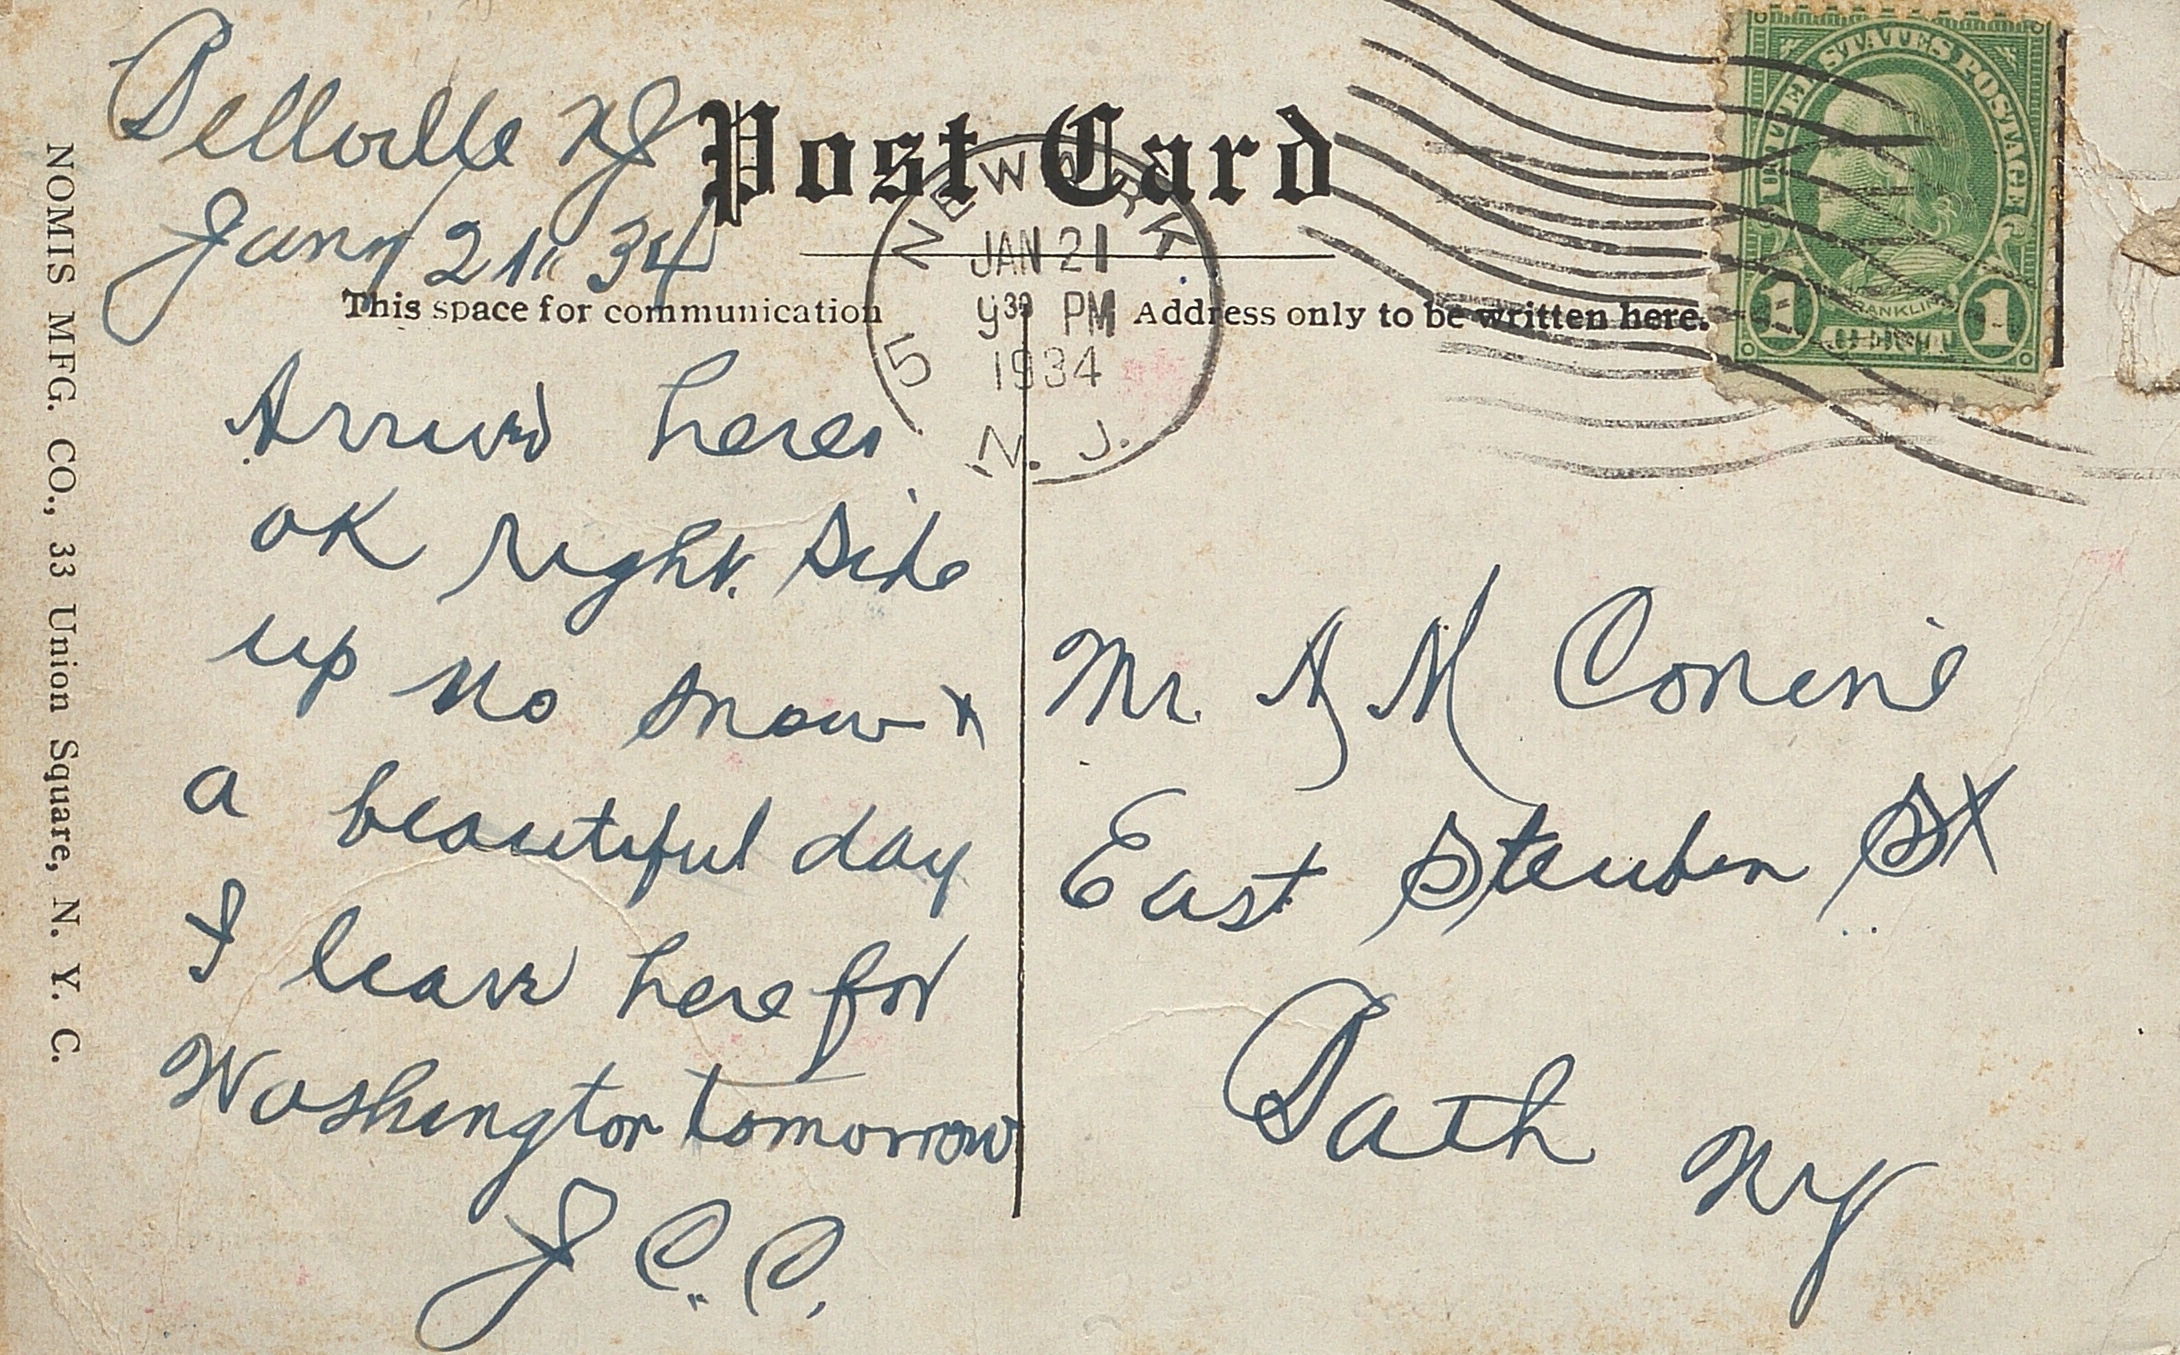 Bellville NJ
Jany 21" 34
Post Card
This space for communication
Address only to be written here.
NEWARK
JAN 21
9 30 PM
1934
5
N. J.
UNITED STATES POSTAGE
FRANKLIN
1 1
Arrived here
OK right side
up no snow &
a beautiful day
I leave here for
Washington tomorrow
J. C. C.
Mr. A M Corwin
East Steuben St
Bath NY
NOMIS MFG. CO., 33 Union Square, N. Y. C.